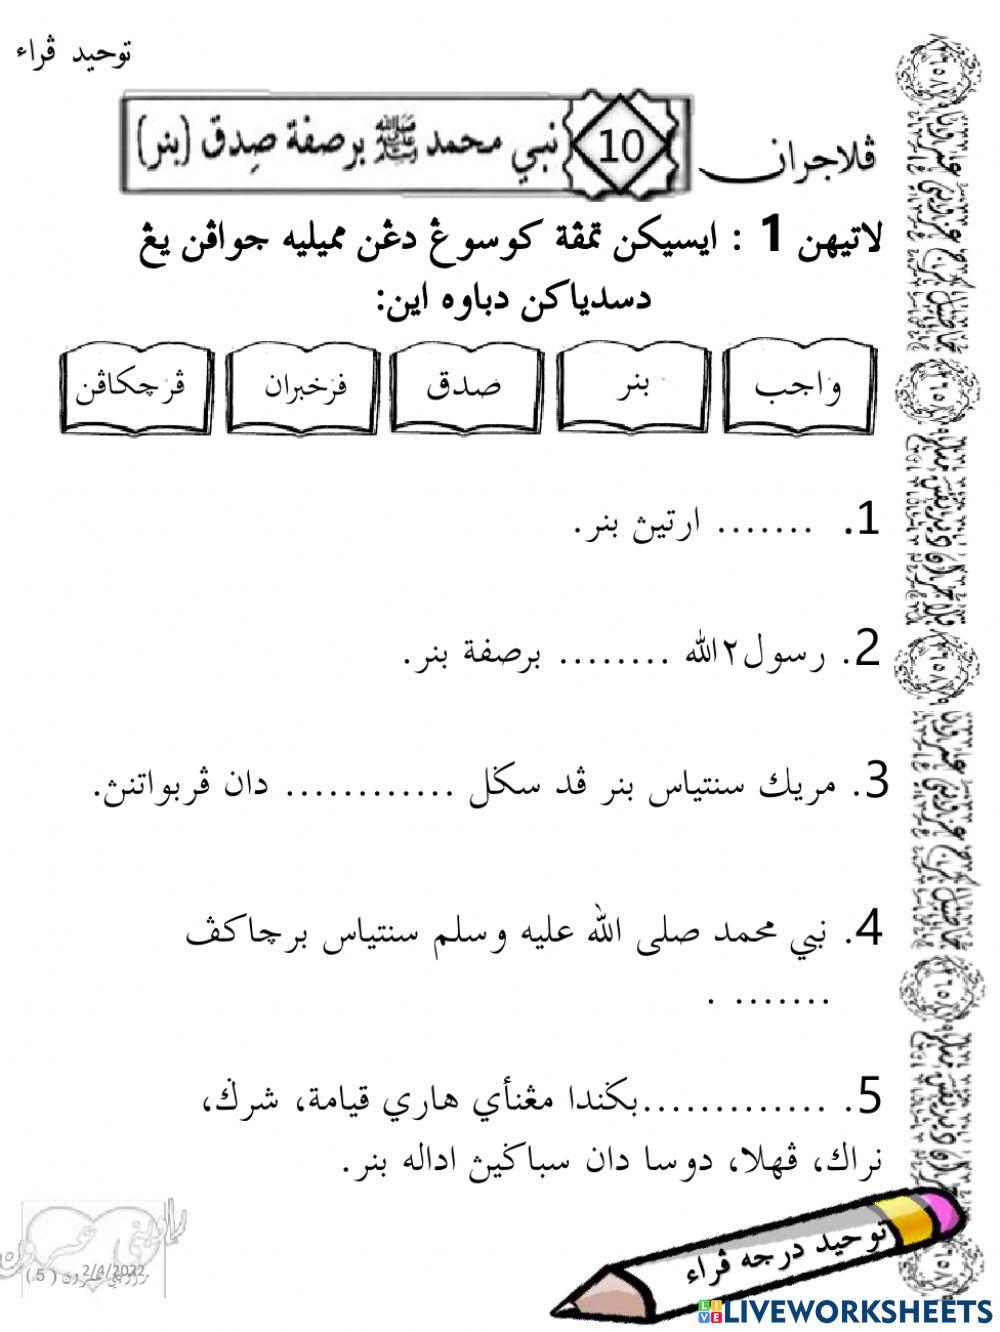 توحيد ڤراء
ڤلاجران 10 نبي محمد ﷺ برصفة صِدق (بنر)
لاتيهن 1 : ايسيكن تمڤة كوسوڠ دڠن مميليه جواڤن يڠ
دسدياكن دباوه اين:
واجب بنر صدق فرخبران ڤرچكاڤن
1. ....... ارتيڽ بنر.
2. رسول٢الله ........ برصفة بنر.
3. مريك سنتياس بنر ڤد سݢل ............ دان ڤربواتنڽ.
4. نبي محمد صلى الله عليه وسلم سنتياس برچاكڤ
....... .
5. .............بڬندا مڠنأي هاري قيامة، شرݢ،
نراك، ڤهلا، دوسا دان سباݢيڽ اداله بنر.
توحيد درجه ڤراء
2/4/2022
( 5 )
LIVE LIVEWORKSHEETS